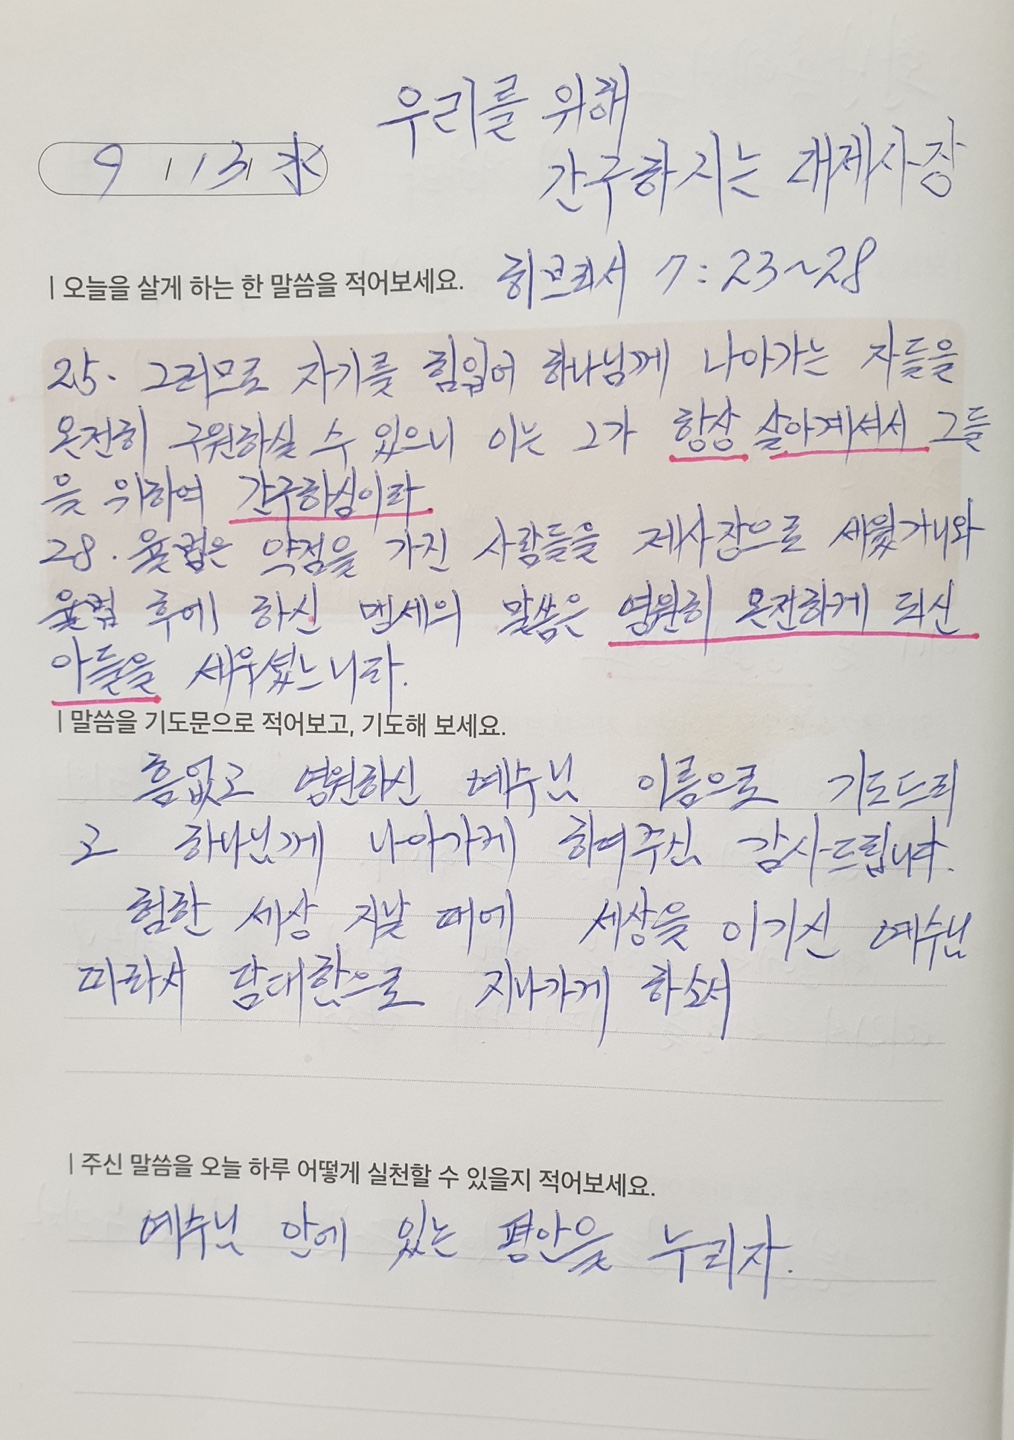 우리를 위해
간구하시는 대제사장
9 / 13 水
| 오늘을 살게 하는 한 말씀을 적어보세요.
히브리서 7:23~28
25. 그러므로 자기를 힘입어 하나님께 나아가는 자들을
온전히 구원하실 수 있으니 이는 그가 항상 살아계셔서 그들
을 위하여 간구하심이라
28. 율법은 약점을 가진 사람들을 제사장으로 세웠거니와
율법 후에 하신 맹세의 말씀은 영원히 온전하게 되신
아들을 세우셨느니라.
| 말씀을 기도문으로 적어보고, 기도해 보세요.
흠없고 영원하신 예수님 이름으로 기도드리
고 하나님께 나아가게 하여주신 감사드립니다.
험한 세상 지날 때에 세상을 이기신 예수님
따라서 담대함으로 지나가게 하소서
| 주신 말씀을 오늘 하루 어떻게 실천할 수 있을지 적어보세요.
예수님 안에 있는 평안을 누리자.